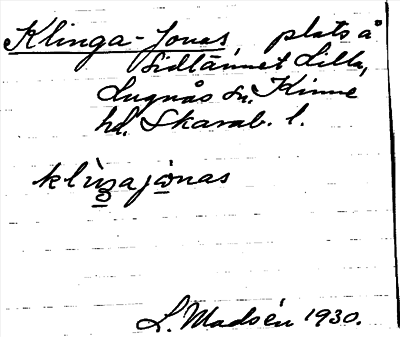 Klinga-Jonas, plats å
Sidtännet Lilla,
Lugnås sn. Kinne
hd. Skarab. l.
klìŋajònas
L. Madsén 1930.